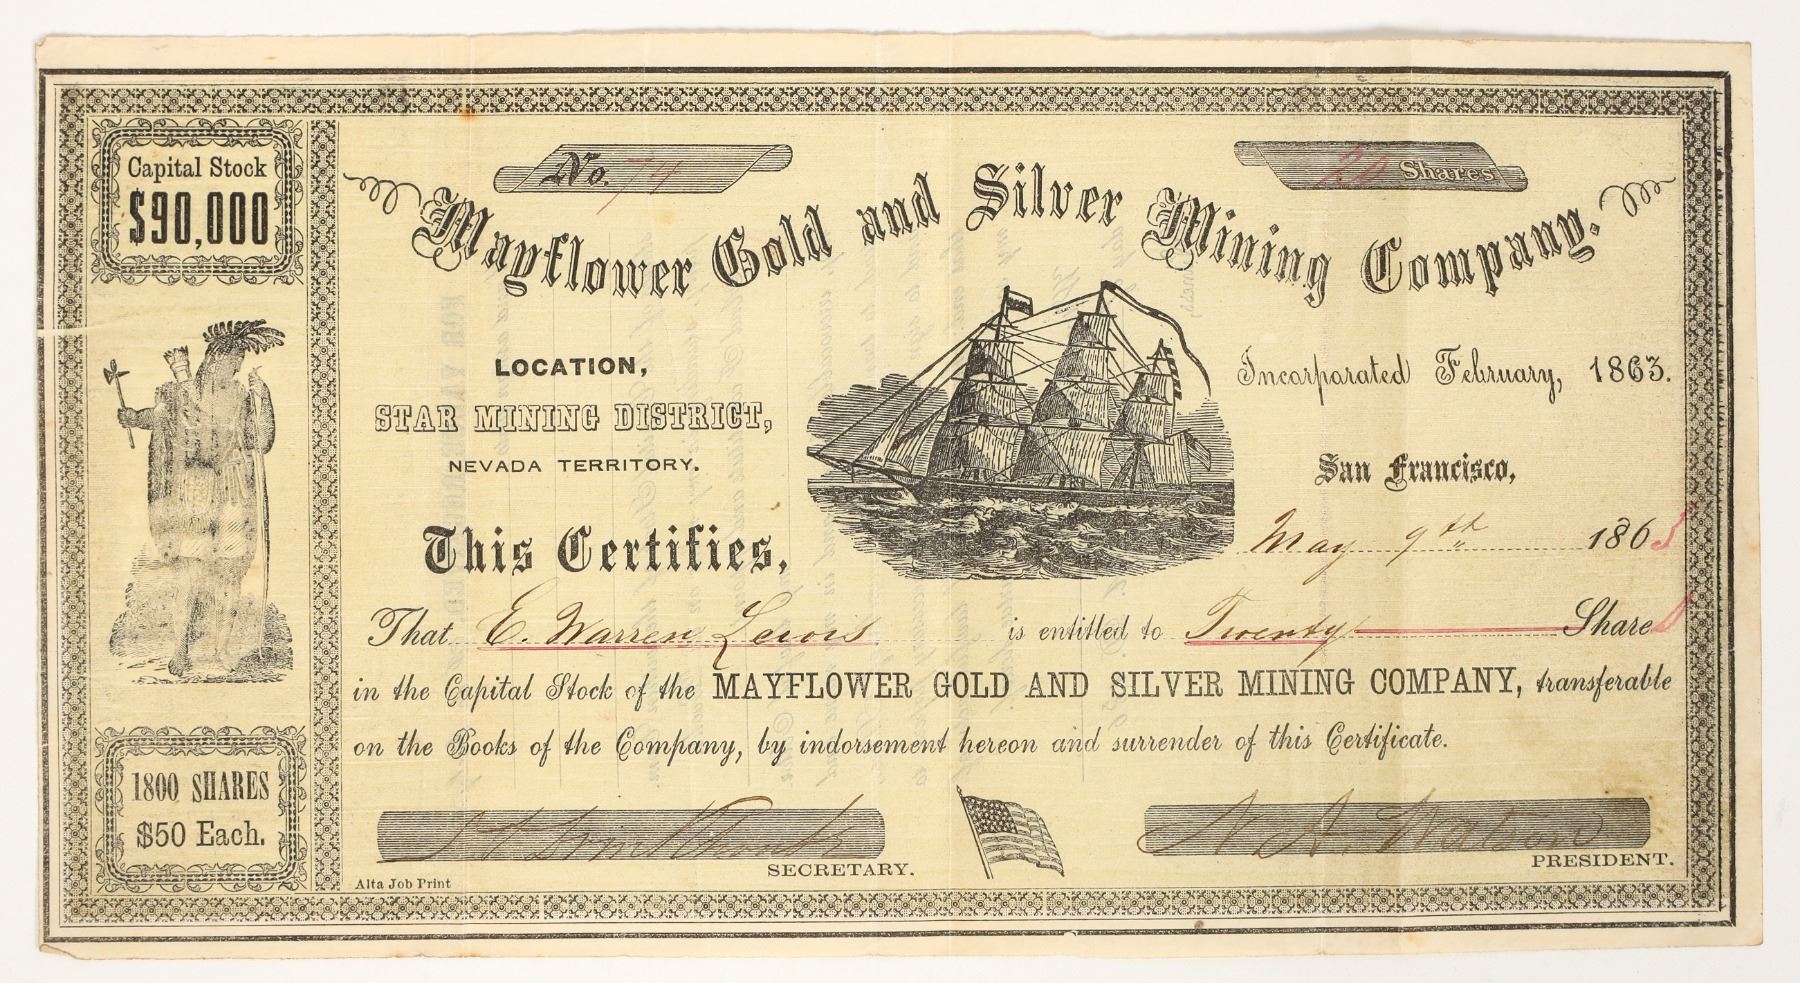 Capital Stock
$90,000
No. 74
20 Shares
Mayflower Gold and Silver Mining Company.
LOCATION,
STAR MINING DISTRICT,
NEVADA TERRITORY.
Incorporated February, 1863.
San Francisco,
May 9th 1863
This Certifies,
That E. Warren Lewis is entitled to Twenty Shares
in the Capital Stock of the MAYFLOWER GOLD AND SILVER MINING COMPANY, transferable
on the Books of the Company, by indorsement hereon and surrender of this Certificate.
1800 SHARES
$50 Each.
SECRETARY.
Watson
PRESIDENT.
Alta Job Print